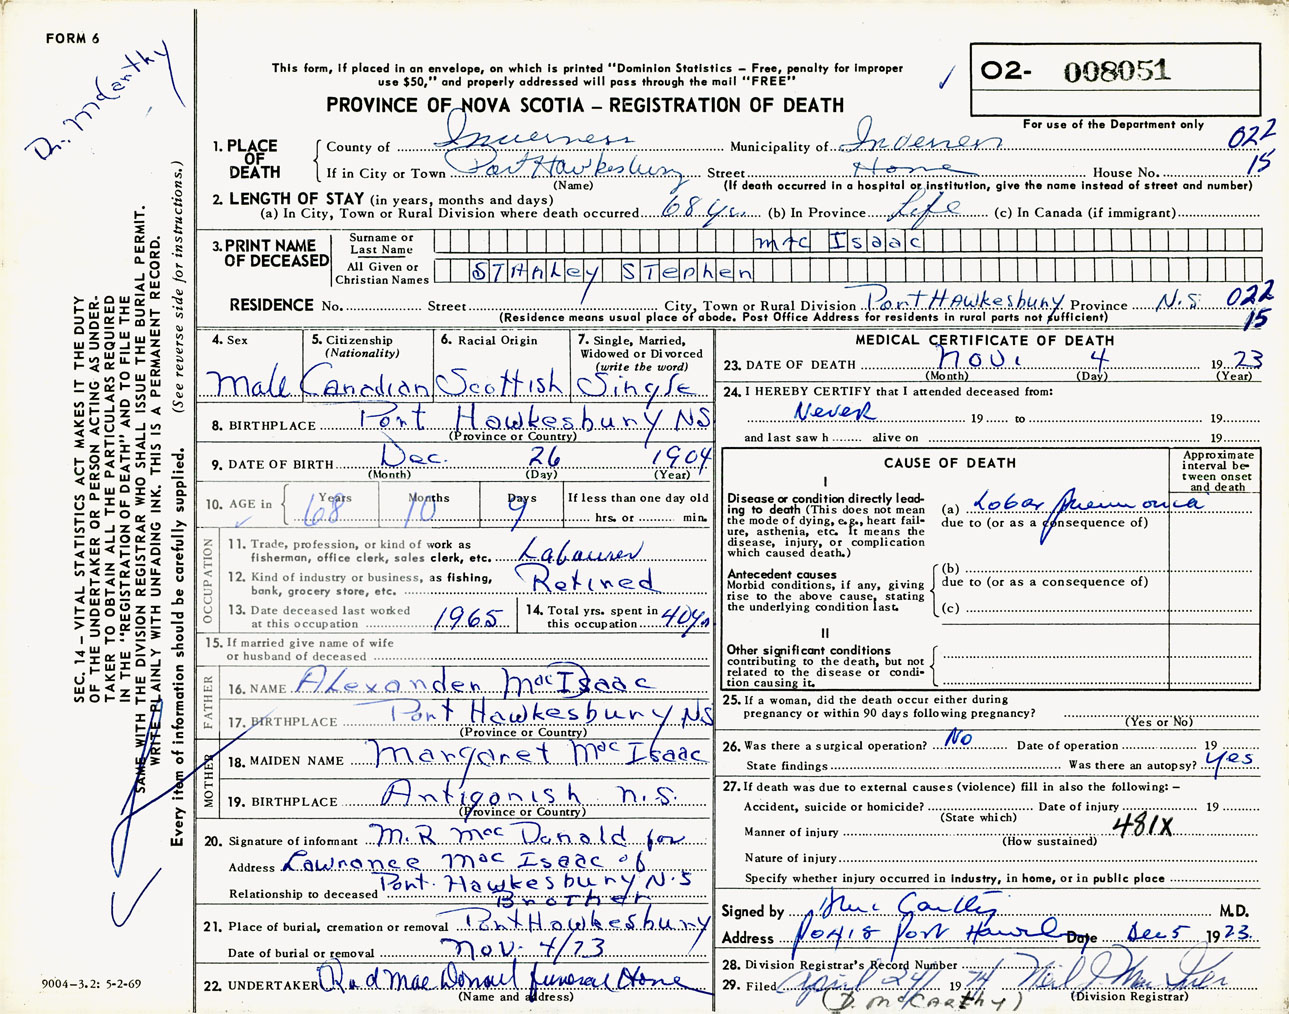 FORM 6
Dr. McCarthy
This form, if placed in an envelope, on which is printed "Dominion Statistics – Free, penalty for improper
use $50," and properly addressed will pass through the mail "FREE"
O2- 008051
PROVINCE OF NOVA SCOTIA – REGISTRATION OF DEATH
For use of the Department only
1. PLACE OF DEATH
County of Inverness Municipality of Inverness 022
If in City or Town Port Hawkesbury Street Home House No. 15
(Name) (If death occurred in a hospital or institution, give the name instead of street and number)
2. LENGTH OF STAY (in years, months and days)
(a) In City, Town or Rural Division where death occurred 68 yrs. (b) In Province Life (c) In Canada (if immigrant)
3. PRINT NAME OF DECEASED
Surname or Last Name Mac Isaac
All Given or Christian Names STAnley STephen
RESIDENCE No. Street City, Town or Rural Division Port Hawkesbury Province N.S. 022
(Residence means usual place of abode. Post Office Address for residents in rural parts not sufficient) 15
SEC. 14 – VITAL STATISTICS ACT MAKES IT THE DUTY
OF THE UNDERTAKER OR PERSON ACTING AS UNDER-
TAKER TO OBTAIN ALL THE PARTICULARS REQUIRED
IN THE "REGISTRATION OF DEATH" AND TO FILE THE
SAME WITH THE DIVISION REGISTRAR WHO SHALL ISSUE THE BURIAL PERMIT.
WRITE PLAINLY WITH UNFADING INK. THIS IS A PERMANENT RECORD.
Every item of information should be carefully supplied. (See reverse side for instructions.)
4. Sex
Male
5. Citizenship
(Nationality)
Canadian
6. Racial Origin
Scottish
7. Single, Married,
Widowed or Divorced
(write the word)
Single
8. BIRTHPLACE Port Hawkesbury NS
(Province or Country)
9. DATE OF BIRTH Dec. 26 1904
(Month) (Day) (Year)
10. AGE in
Years 68
Months 10
Days 9
If less than one day old
hrs. or min.
OCCUPATION
11. Trade, profession, or kind of work as
fisherman, office clerk, sales clerk, etc. Labourer
12. Kind of industry or business, as fishing,
bank, grocery store, etc. Retired
13. Date deceased last worked
at this occupation 1965
14. Total yrs. spent in
this occupation 40yrs
15. If married give name of wife
or husband of deceased
FATHER
16. NAME Alexander MacIsaac
17. BIRTHPLACE Port Hawkesbury N.S
(Province or Country)
MOTHER
18. MAIDEN NAME Margaret Mac Isaac
19. BIRTHPLACE Antigonish N.S.
(Province or Country)
20. Signature of informant M.R MacDonald for
Address Lawrance Mac Isaac of
Port Hawkesbury N.S
Relationship to deceased Brother
21. Place of burial, cremation or removal Port Hawkesbury
Date of burial or removal Nov. 4/73
22. UNDERTAKER Rod MacDonald funeral Home
(Name and address)
9004-3.2: 5-2-69
MEDICAL CERTIFICATE OF DEATH
23. DATE OF DEATH Nov. 4 1923
(Month) (Day) (Year)
24. I HEREBY CERTIFY that I attended deceased from:
Never 19 to 19
and last saw h alive on 19
CAUSE OF DEATH
Approximate
interval be-
tween onset
and death
I
Disease or condition directly lead-
ing to death (This does not
mean
the mode of dying, e.g., heart fail-
ure, asthenia, etc. It means the
disease, injury, or complication
which caused death.)
(a) Lobar pneumonia
due to (or as a consequence of)
Antecedent causes
Morbid conditions, if any, giving
rise to the above cause, stating
the underlying condition last.
(b)
due to (or as a consequence of)
(c)
II
Other significant conditions
contributing to the death, but not
related to the disease or condi-
tion causing it.
25. If a woman, did the death occur either during
pregnancy or within 90 days following pregnancy?
(Yes or No)
26. Was there a surgical operation? No Date of operation 19
State findings Was there an autopsy? Yes
27. If death was due to external causes (violence) fill in also the following: –
Accident, suicide or homicide? Date of injury 19
(State which)
Manner of injury 481X
(How sustained)
Nature of injury
Specify whether injury occurred in industry, in home, or in public place
Signed by McCarthy M.D.
Address Port Date Dec 5 1923
28. Division Registrar's Record Number
29. Filed April 24 1974 Neil J.
(D. McCarthy) (Division Registrar)